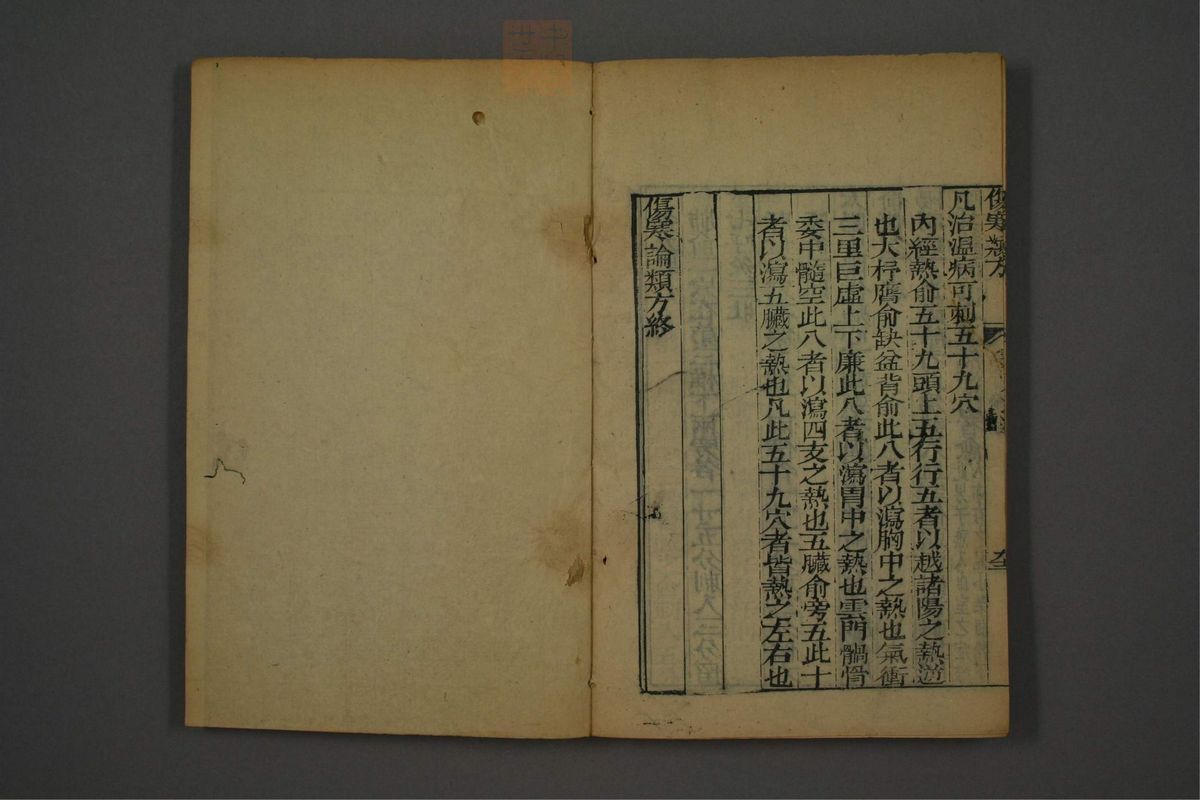 傷寒類方
凡治溫病可刺五十九穴
內經熱俞五十九頭上五行行五者以越諸陽之熱逆
也大杼膺俞缺盆背俞此八者以瀉胸中之熱也氣衝
三里巨虛上下廉此八者以瀉胃中之熱也雲門髃骨
委中髓空此八者以瀉四支之熱也五臟俞旁五此十
者以瀉五臟之熱也凡此五十九穴者皆熱之左右也
傷寒論類方終